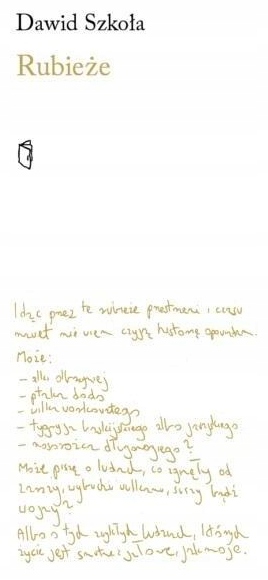 Dawid Szkoła
Rubieże
Idąc przez te rubieże przestrzeni i czasu
nawet nie wiem czyją historię opowiadam.
Może:
– alki olbrzymiej
– ptaka dodo
– wilka workowatego
– tygrysa balijskiego albo jawajskiego
– nosorożca długorogiego?
Może piszę o ludziach, co zginęły od
zarazy, wybuchu wulkanu, suszy bądź
wojny?
Albo o tych zwykłych ludziach, których
życie jest smutne i jałowe, jak moje.